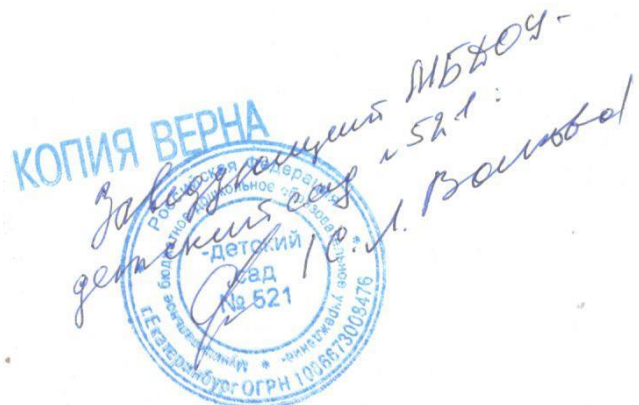 КОПИЯ ВЕРНА
Заведующий МБДОУ-
детский сад № 521:
/С.Л. Волкова/
Российская Федерация
Муниципальное бюджетное дошкольное образовательное учреждение-
г.Екатеринбург ОГРН 1006673008476
-детский
сад
№ 521